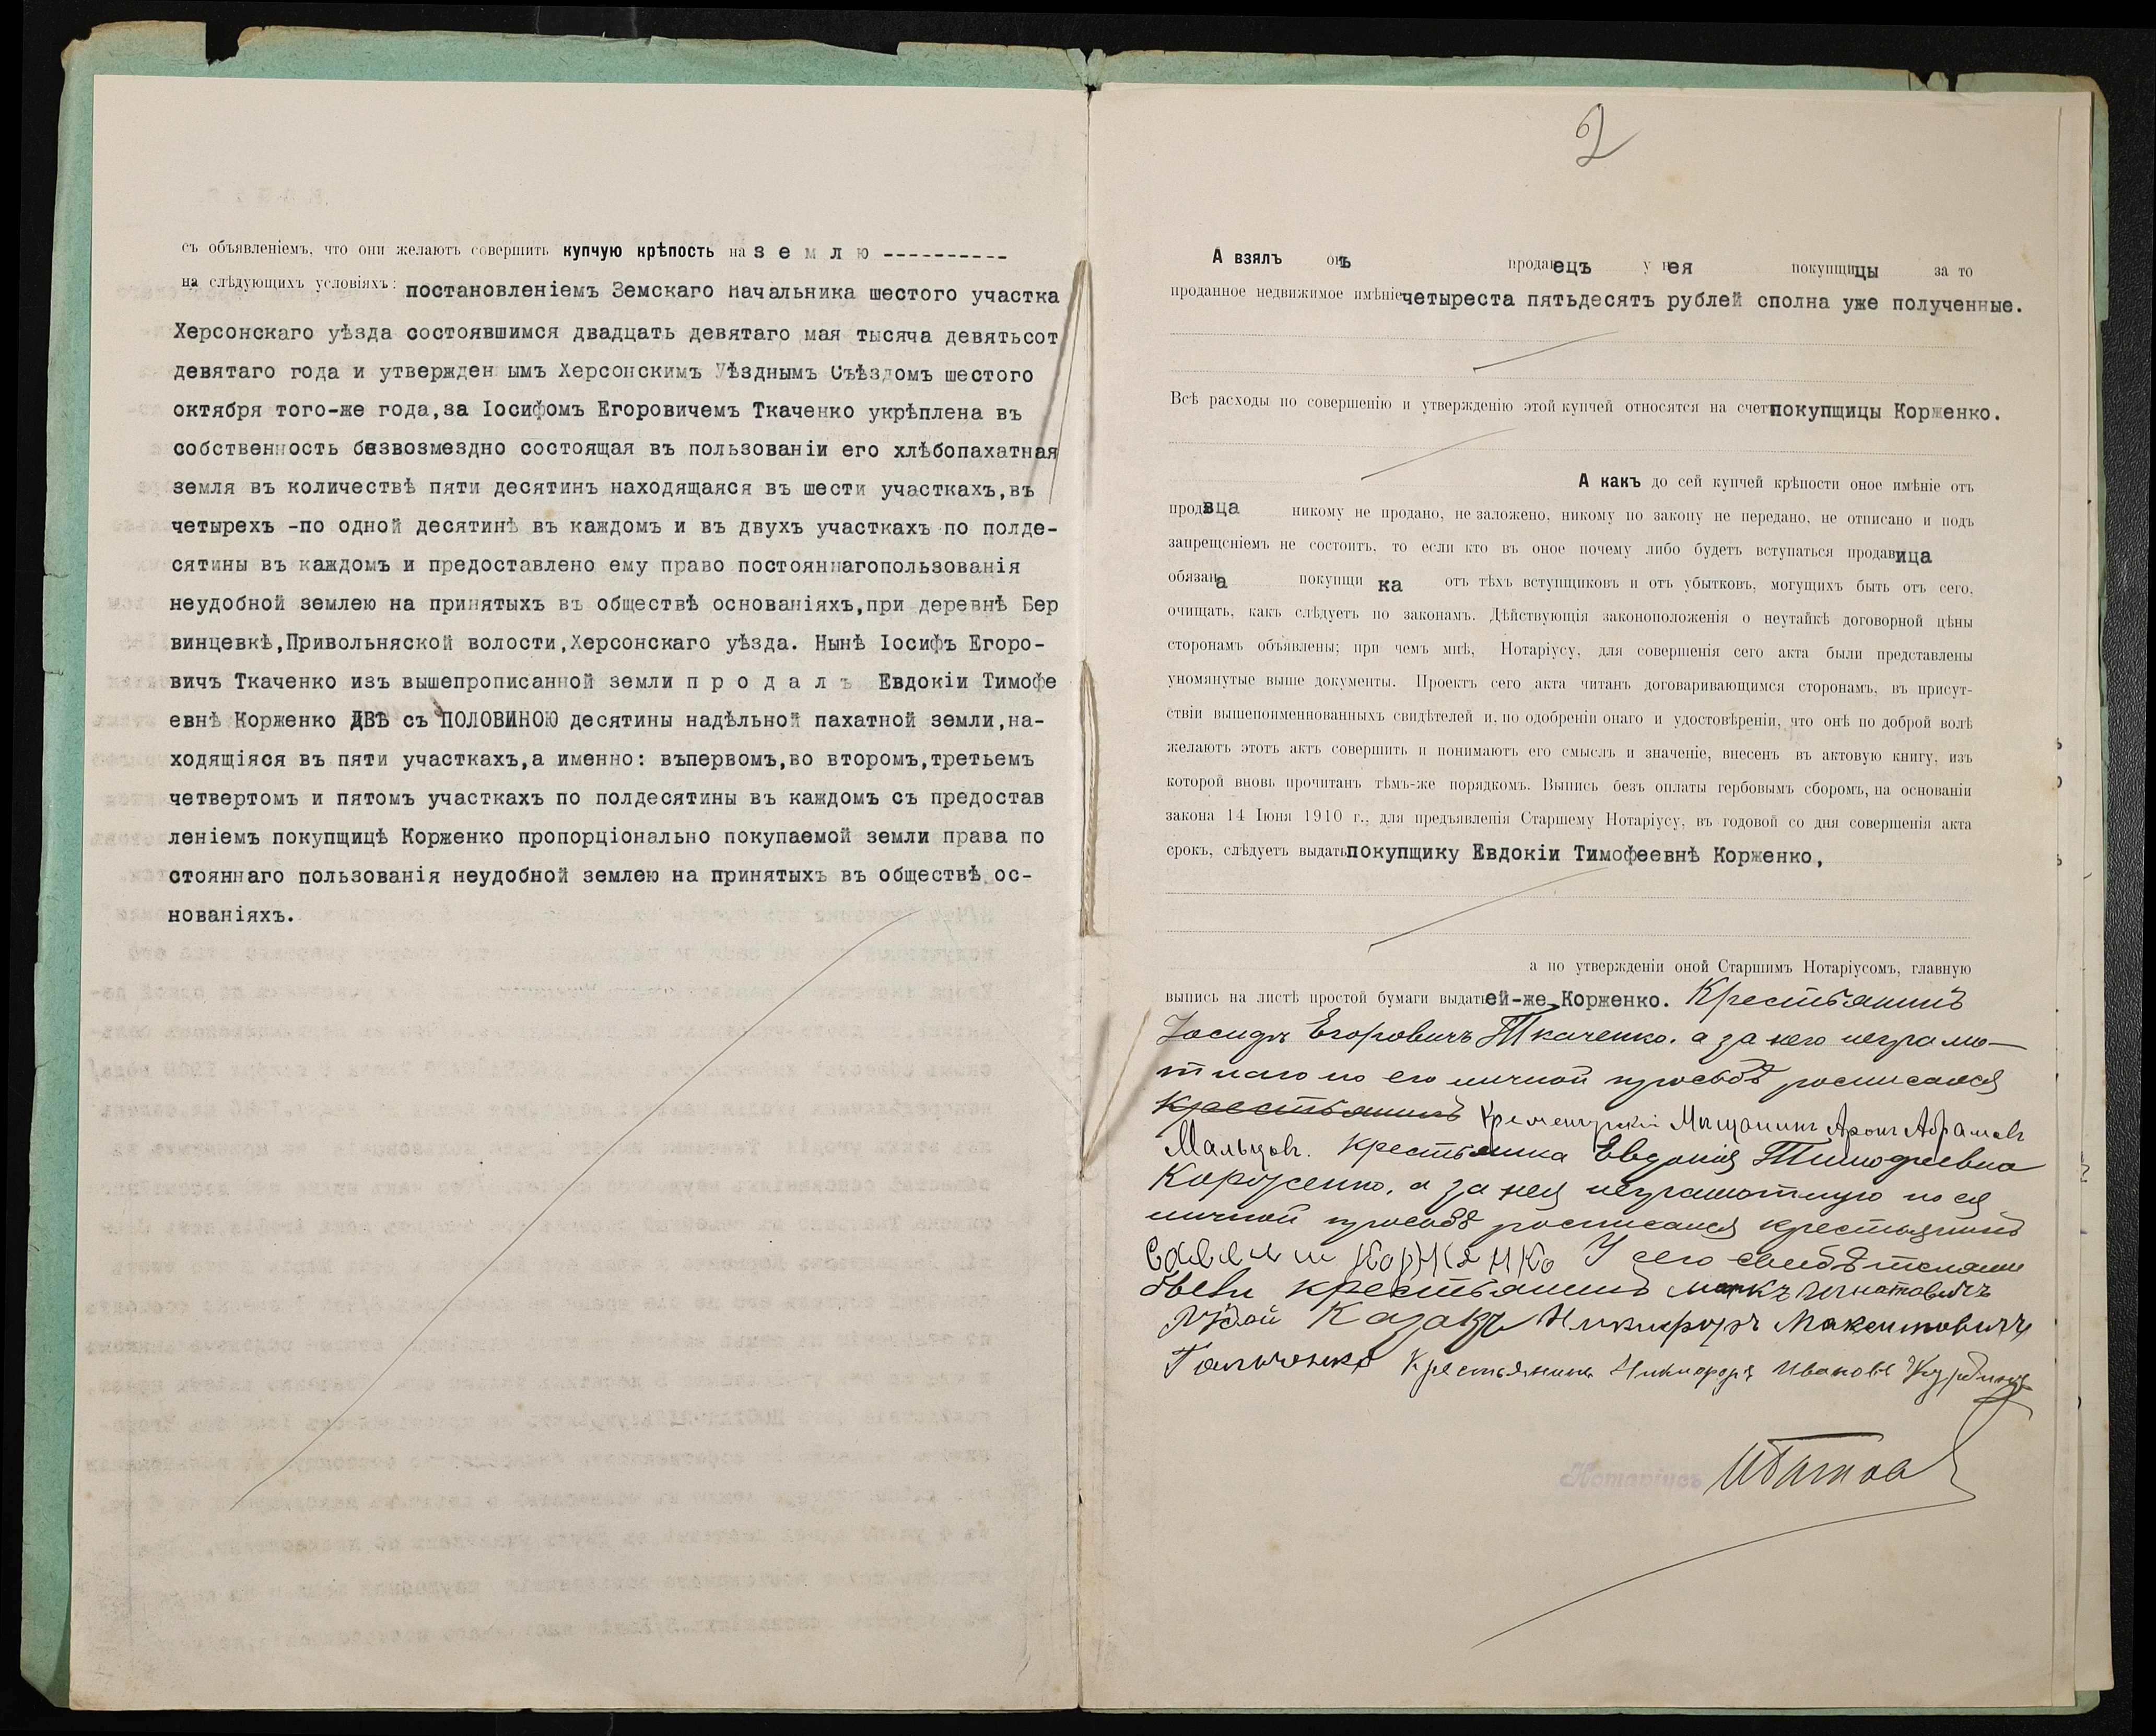 съ объявленіемъ, что они желаютъ совершить купчую крѣпость на з е м л ю ----------
на слѣдующихъ условіяхъ: постановленіемъ Земскаго Начальника шестого участка
Херсонскаго уѣзда состоявшимся двадцать девятаго мая тысяча девятьсот
девятаго года и утвержден ымъ Херсонскимъ Уѣзднымъ Съѣздомъ шестого
октября того-же года,за Іосифомъ Егоровичемъ Ткаченко укрѣплена въ
собственность безвозмездно состоящая въ пользованіи его хлѣбопахатная
земля въ количествѣ пяти десятинъ находящаяся въ шести участкахъ,въ
четырехъ -по одной десятинѣ въ каждомъ и въ двухъ участкахъ по полде-
сятины въ каждомъ и предоставлено ему право постояннагопользованія
неудобной землею на принятыхъ въ обществѣ основаніяхъ,при деревнѣ Бер
винцевкѣ,Привольнянской волости,Херсонскаго уѣзда. Нынѣ Іосифъ Егоро-
вичъ Ткаченко изъ вышепрописанной земли п р о д а л ъ Евдокіи Тимофе
евнѣ Корженко ДВѢ съ ПОЛОВИНОЮ десятины надѣльной пахатной земли,на-
ходящіяся въ пяти участкахъ,а именно: въпервомъ,во второмъ,третьемъ
четвертомъ и пятомъ участкахъ по полдесятины въ каждомъ съ предостав
леніемъ покупщицѣ Корженко пропорціонально покупаемой земли права по
стояннаго пользованія неудобной землею на принятыхъ въ обществѣ ос-
нованіяхъ.
2
А взялъ онъ продавецъ у нея покупщицы за то
проданное недвижимое имѣніе четыреста пятьдесятъ рублей сполна уже полученные.
Всѣ расходы по совершенію и утвержденію этой купчей относятся на счетъ покупщицы Корженко.
А какъ до сей купчей крѣпости оное имѣніе отъ
продавца никому не продано, не заложено, никому по закону не передано, не отписано и подъ
запрещеніемъ не состоитъ, то если кто въ оное почему либо будетъ вступаться продавица
обязана покупщи ка отъ тѣхъ вступщиковъ и отъ убытковъ, могущихъ быть отъ сего,
очищать, какъ слѣдуетъ по законамъ. Дѣйствующія законоположенія о неутайкѣ договорной цѣны
сторонамъ объявлены; при чемъ мнѣ, Нотаріусу, для совершенія сего акта были представлены
упомянутые выше документы. Проектъ сего акта читанъ договаривающимся сторонамъ, въ присут-
ствіи вышепоименнованныхъ свидѣтелей и, по одобреніи онаго и удостовѣреніи, что онѣ по доброй волѣ
желаютъ этотъ актъ совершить и понимаютъ его смыслъ и значеніе, внесенъ въ актовую книгу, изъ
которой вновь прочитанъ тѣмъ-же порядкомъ. Выпись безъ оплаты гербовымъ сборомъ, на основаніи
закона 14 Іюня 1910 г., для предъявленія Старшему Нотаріусу, въ годовой со дня совершенія акта
срокъ, слѣдуетъ выдать покупщику Евдокіи Тимофеевнѣ Корженко,
а по утвержденіи оной Старшимъ Нотаріусомъ, главную
выпись на листѣ простой бумаги выдать ей-же Корженко. Крестьянинъ
Іосифъ Егоровичъ Ткаченко, а за него неграмо-
тнаго по его личной просьбѣ росписался
крестьянинъ Кременчугскій Мѣщанинъ Аронъ Абрамовъ
Мальцовъ. Крестьянка Евдокія Тимофеевна
Корженко, а за нея неграмотную по ея
личной просьбѣ росписался крестьянинъ
Корженко У сего свидѣтелями
были крестьянинъ Маркъ Игнатовичъ
Казакъ Никифоръ Максимовичъ
Крестьянинъ Никифоръ Ивановъ
Нотаріусъ